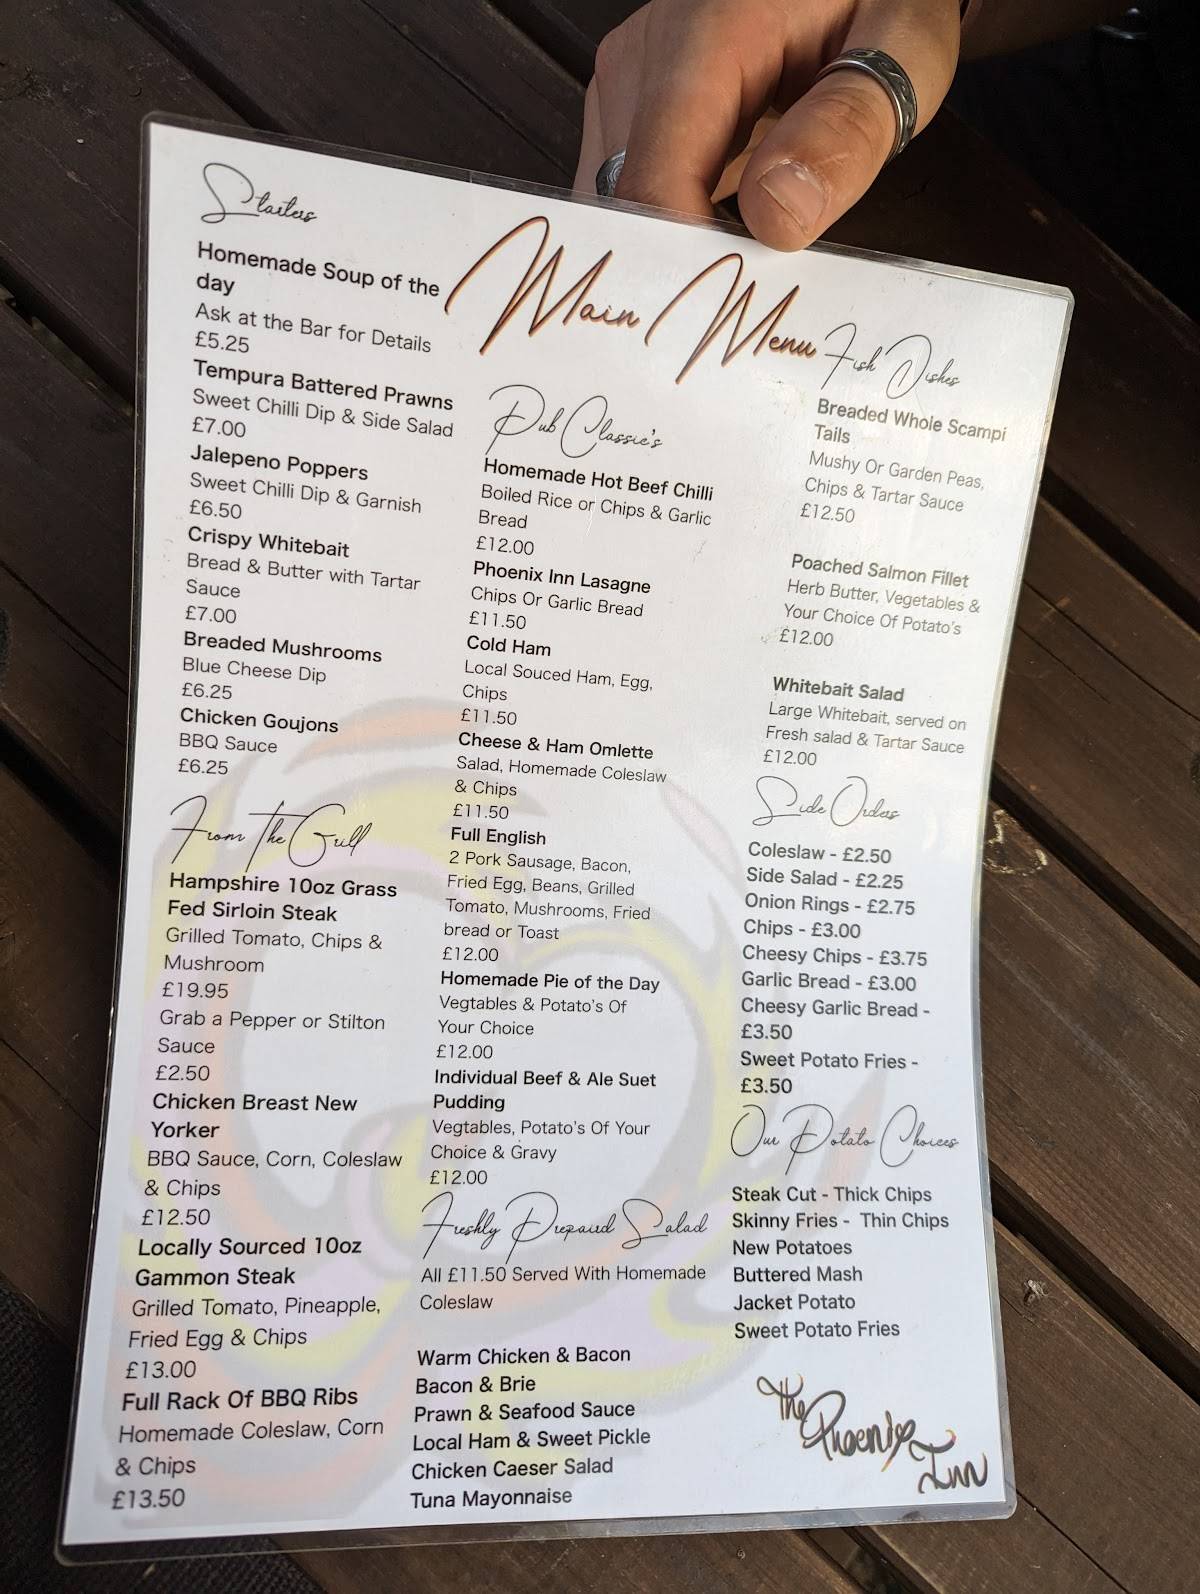 Main Menu
Starters
Homemade Soup of the
day
Ask at the Bar for Details
£5.25
Tempura Battered Prawns
Sweet Chilli Dip & Side Salad
£7.00
Jalepeno Poppers
Sweet Chilli Dip & Garnish
£6.50
Crispy Whitebait
Bread & Butter with Tartar
Sauce
£7.00
Breaded Mushrooms
Blue Cheese Dip
£6.25
Chicken Goujons
BBQ Sauce
£6.25
From The Grill
Hampshire 10oz Grass
Fed Sirloin Steak
Grilled Tomato, Chips &
Mushroom
£19.95
Grab a Pepper or Stilton
Sauce
£2.50
Chicken Breast New
Yorker
BBQ Sauce, Corn, Coleslaw
& Chips
£12.50
Locally Sourced 10oz
Gammon Steak
Grilled Tomato, Pineapple,
Fried Egg & Chips
£13.00
Full Rack Of BBQ Ribs
Homemade Coleslaw, Corn
& Chips
£13.50
Pub Classic's
Homemade Hot Beef Chilli
Boiled Rice or Chips & Garlic
Bread
£12.00
Phoenix Inn Lasagne
Chips Or Garlic Bread
£11.50
Cold Ham
Local Souced Ham, Egg,
Chips
£11.50
Cheese & Ham Omlette
Salad, Homemade Coleslaw
& Chips
£11.50
Full English
2 Pork Sausage, Bacon,
Fried Egg, Beans, Grilled
Tomato, Mushrooms, Fried
bread or Toast
£12.00
Homemade Pie of the Day
Vegtables & Potato's Of
Your Choice
£12.00
Individual Beef & Ale Suet
Pudding
Vegtables, Potato's Of Your
Choice & Gravy
£12.00
Freshly Prepaired Salad
All £11.50 Served With Homemade
Coleslaw
Warm Chicken & Bacon
Bacon & Brie
Prawn & Seafood Sauce
Local Ham & Sweet Pickle
Chicken Caeser Salad
Tuna Mayonnaise
Fish Dishes
Breaded Whole Scampi
Tails
Mushy Or Garden Peas,
Chips & Tartar Sauce
£12.50
Poached Salmon Fillet
Herb Butter, Vegetables &
Your Choice Of Potato's
£12.00
Whitebait Salad
Large Whitebait, served on
Fresh salad & Tartar Sauce
£12.00
Side Orders
Coleslaw - £2.50
Side Salad - £2.25
Onion Rings - £2.75
Chips - £3.00
Cheesy Chips - £3.75
Garlic Bread - £3.00
Cheesy Garlic Bread -
£3.50
Sweet Potato Fries -
£3.50
Our Potato Choices
Steak Cut - Thick Chips
Skinny Fries - Thin Chips
New Potatoes
Buttered Mash
Jacket Potato
Sweet Potato Fries
The
Phoenix
Inn